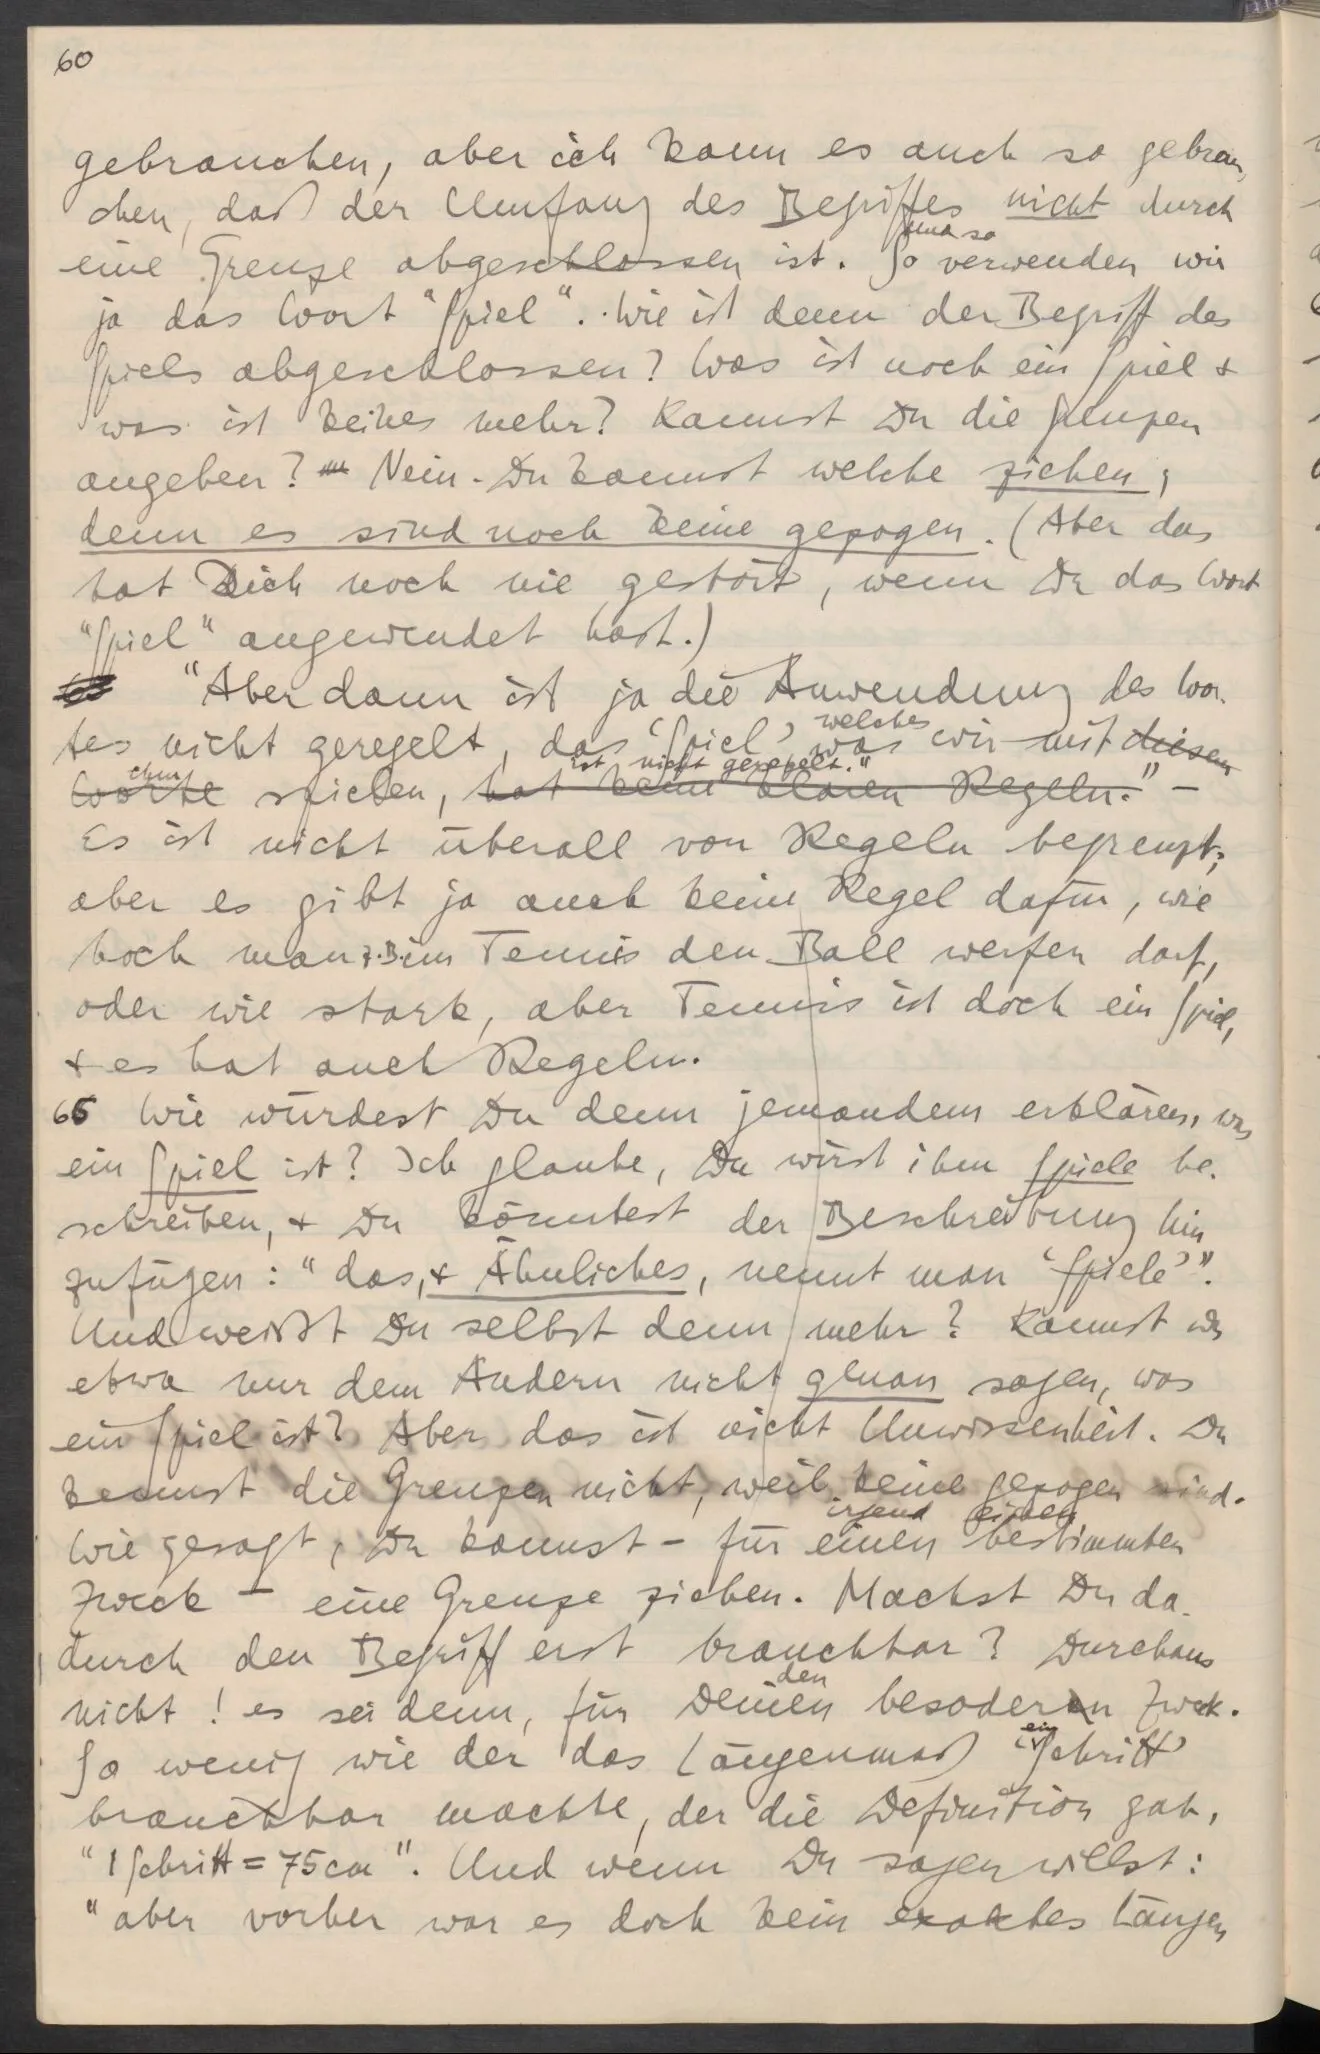 60
gebrauchen, aber ich kann es auch so gebrau
chen, daß der Umfang des Begriffes nicht durch
eine Grenze abgeschlossen ist. So verwenden wir
und so
ja das Wort "Spiel". Wie ist denn der Begriff des
Spiels abgeschlossen? Was ist noch ein Spiel &
was ist keines mehr? Kannst Du die Grenzen
angeben? – Nein. Du kannst welche ziehen,
denn es sind noch keine gezogen. (Aber das
hat Dich noch nie gestört, wenn Du das Wort
"Spiel" angewendet hast.)
"Aber dann ist ja die Anwendung des Wor-
tes nicht geregelt, das 'Spiel' was wir mit diesem
welches
Worte spielen, hat keine klaren Regeln." –
chem ist nicht geregelt."
Es ist nicht überall von Regeln begrenzt;
aber es gibt ja auch keine Regel dafür, wie
hoch man z.B. im Tennis den Ball werfen darf,
oder wie stark, aber Tennis ist doch ein Spiel,
& es hat auch Regeln.
65 Wie würdest Du denn jemandem erklären, was
ein Spiel ist? Ich glaube, Du wirst ihm Spiele be-
schreiben, & Du könntest der Beschreibung hin
zufügen: "das, & Ähnliches, nennt man 'Spiele'".
Und weißt Du selbst denn mehr? Kannst du
etwa nur dem Andern nicht genau sagen, was
ein Spiel ist? Aber das ist nicht Unwissenheit. Du
kennst die Grenzen nicht, weil keine gezogen sind.
Wie gesagt, Du kannst – für einen bestimmten
irgend einen
Zweck – eine Grenze ziehen. Machst Du da-
durch den Begriff erst brauchbar? Durchaus
nicht! es sei denn, für Deinen besoderen Zweck.
den
So wenig wie der das Längenmaß 'Schritt'
ein
brauchbar machte, der die Definition gab,
"1 Schritt = 75 cm". Und wenn Du sagen willst:
"aber vorher war es doch kein exaktes Längen